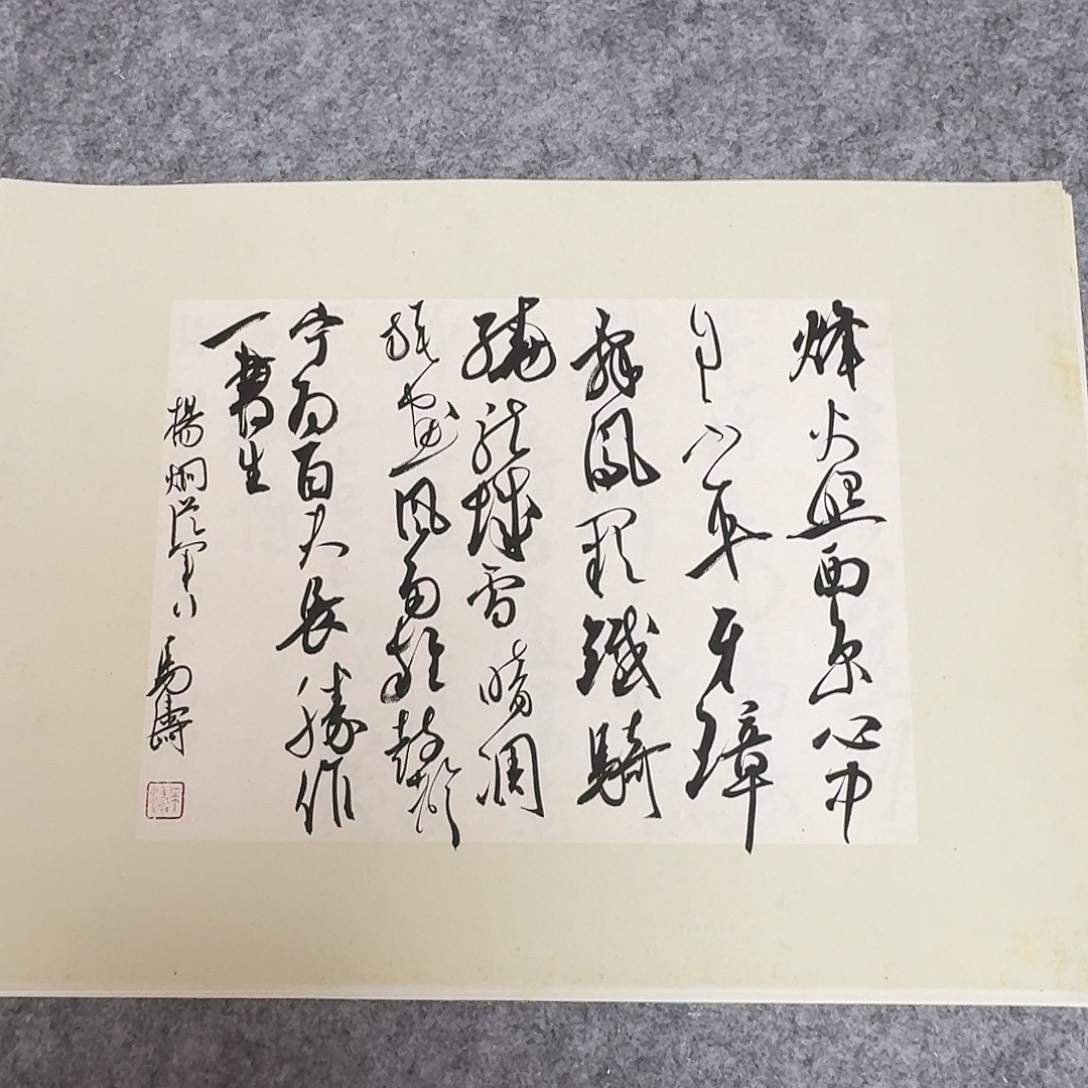 烽火照西京心中
自不平牙璋
辭鳳闕鐵騎
繞龍城雪暗凋
旗畫風多雜鼓聲
宁為百夫長勝作
一書生
楊炯從軍行